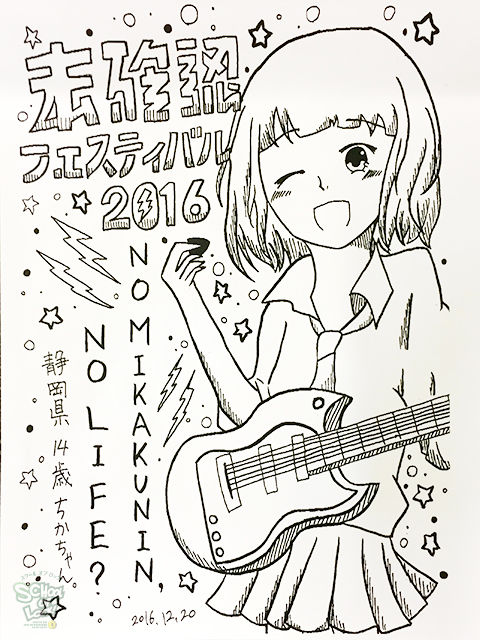 未確認
フェスティバル
2016
NO MIKAKUNIN,
NO LIFE?
静岡県 14歳 ちかちゃん
2016.12.20